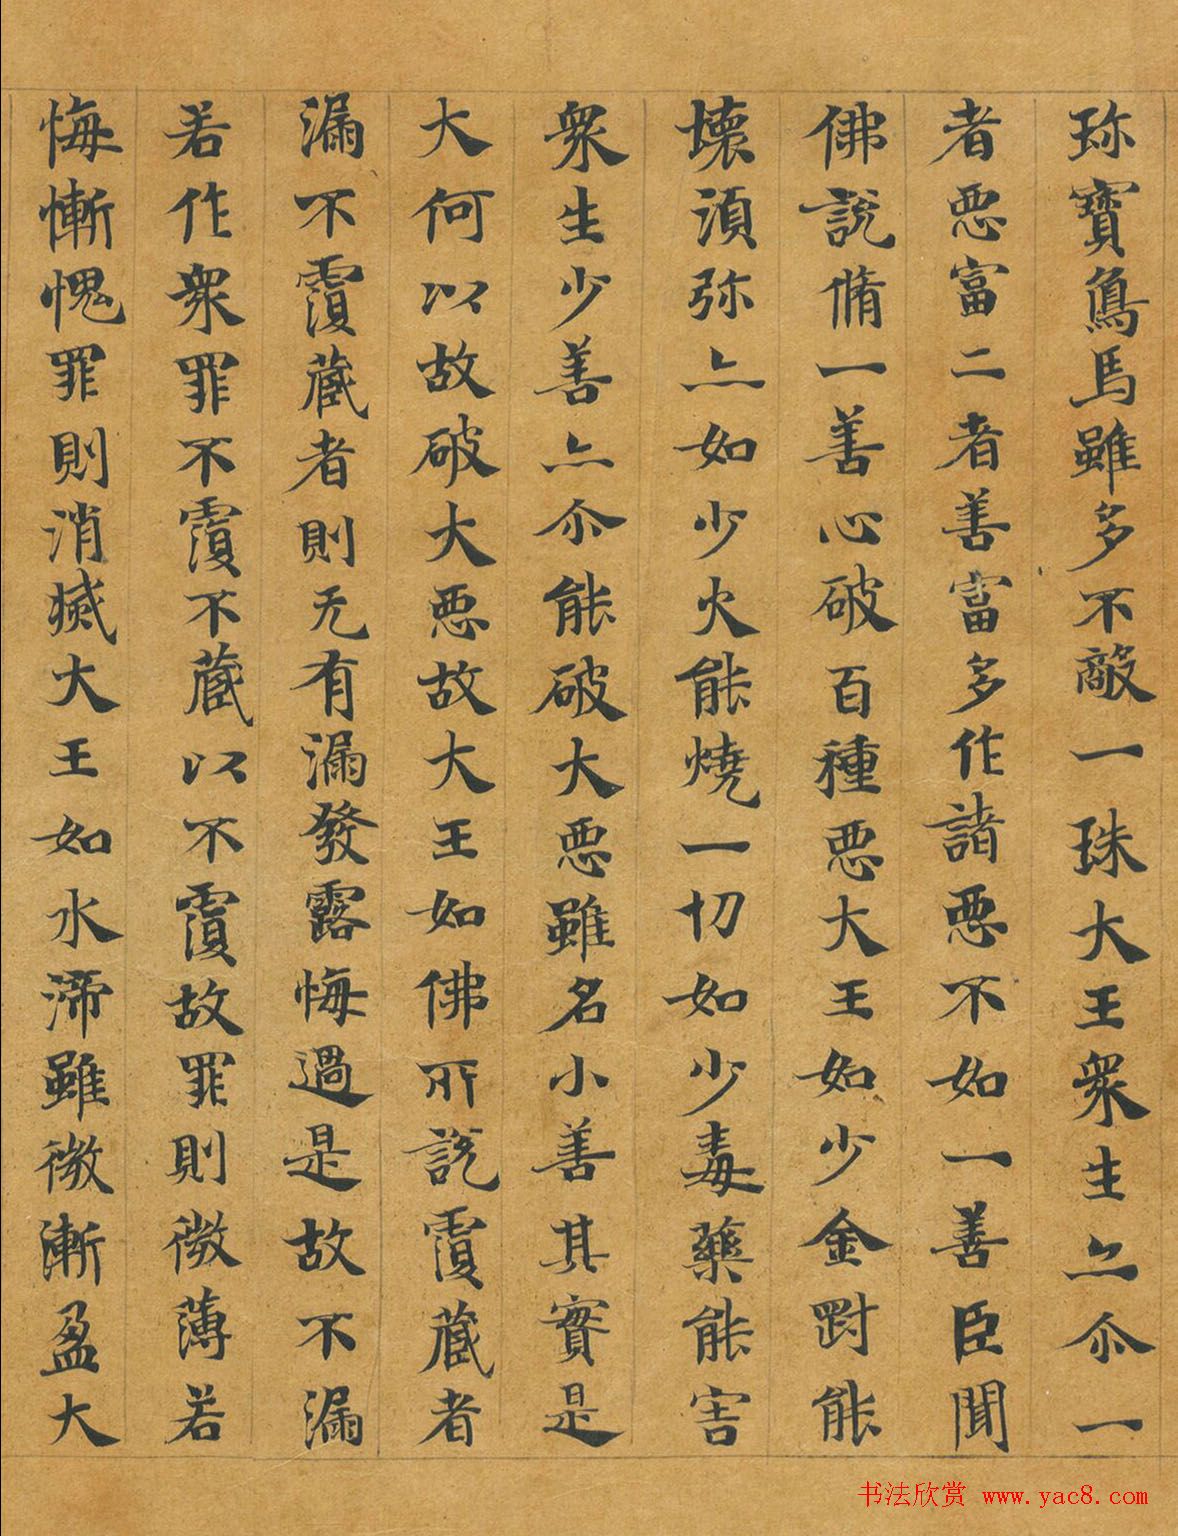 珎寶象馬雖多不敵一珠大王衆生亦尒一
者悪富二者善富多作諸悪不如一善臣聞
佛說脩一善心破百種悪大王如少金剛能
壞湏弥亦如少火能燒一切如少毒藥能害
衆生少善亦尒能破大悪雖名小善其實是
大何以故破大悪故大王如佛所說覆藏者
漏不覆藏者則无有漏發露悔過是故不漏
若作衆罪不覆不藏以不覆故罪則微薄若
悔慚愧罪則消滅大王如水渧雖微漸盈大
书法欣赏 www.yac8.com